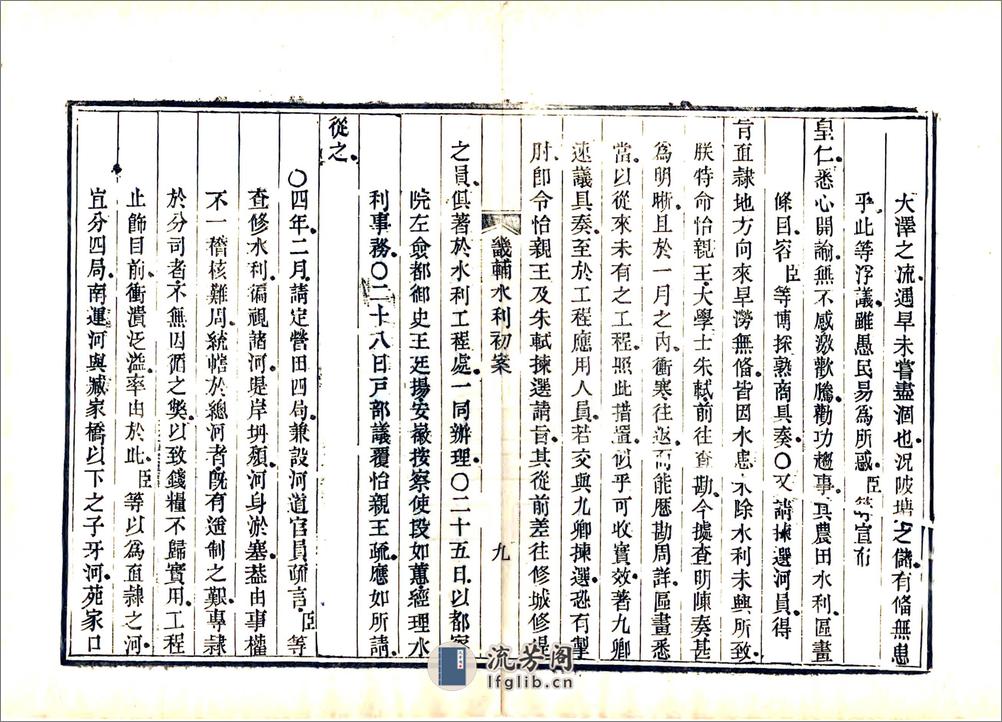 大澤之流遇旱未嘗盡涸也況陂塘之儲有備無患
乎此等浮議雖愚民易為所惑臣等宣布
皇仁悉心開諭無不感激歡騰勸功趨事其農田水利區畫
條目容臣等博採熟商具奏〇又請揀選河員得
旨直隸地方向來旱澇無備皆因水患未除水利未興所致
朕特命怡親王大學士朱軾前往查勘今據查明陳奏甚
為明晰且於一月之內衝寒往返而能歷勘周詳區畫悉
當以從來未有之工程照此措置似乎可收實效著九卿
速議具奏至於工程應用人員若交與九卿揀選恐有掣
肘即令怡親王及朱軾揀選請旨其從前差往修城修堤
畿輔水利初案
九
之員俱著於水利工程處一同辦理〇二十五日以都察
院左僉都御史王廷揚安徽按察使段如蕙經理水
利事務〇二十八日戸部議覆怡親王疏應如所請
從之
〇四年二月請定營田四局兼設河道官員疏言臣等
查修水利徧視諸河堤岸坍頹河身淤塞葢由事權
不一稽核難周統轄於總河者旣有遥制之艱專隸
於分司者不無因循之獘以致錢糧不歸實用工程
止飾目前衝潰泛溢率由於此臣等以為直隸之河
宜分四局南運河與臧家橋以下之子牙河苑家口
流芳閣
lfglib.cn